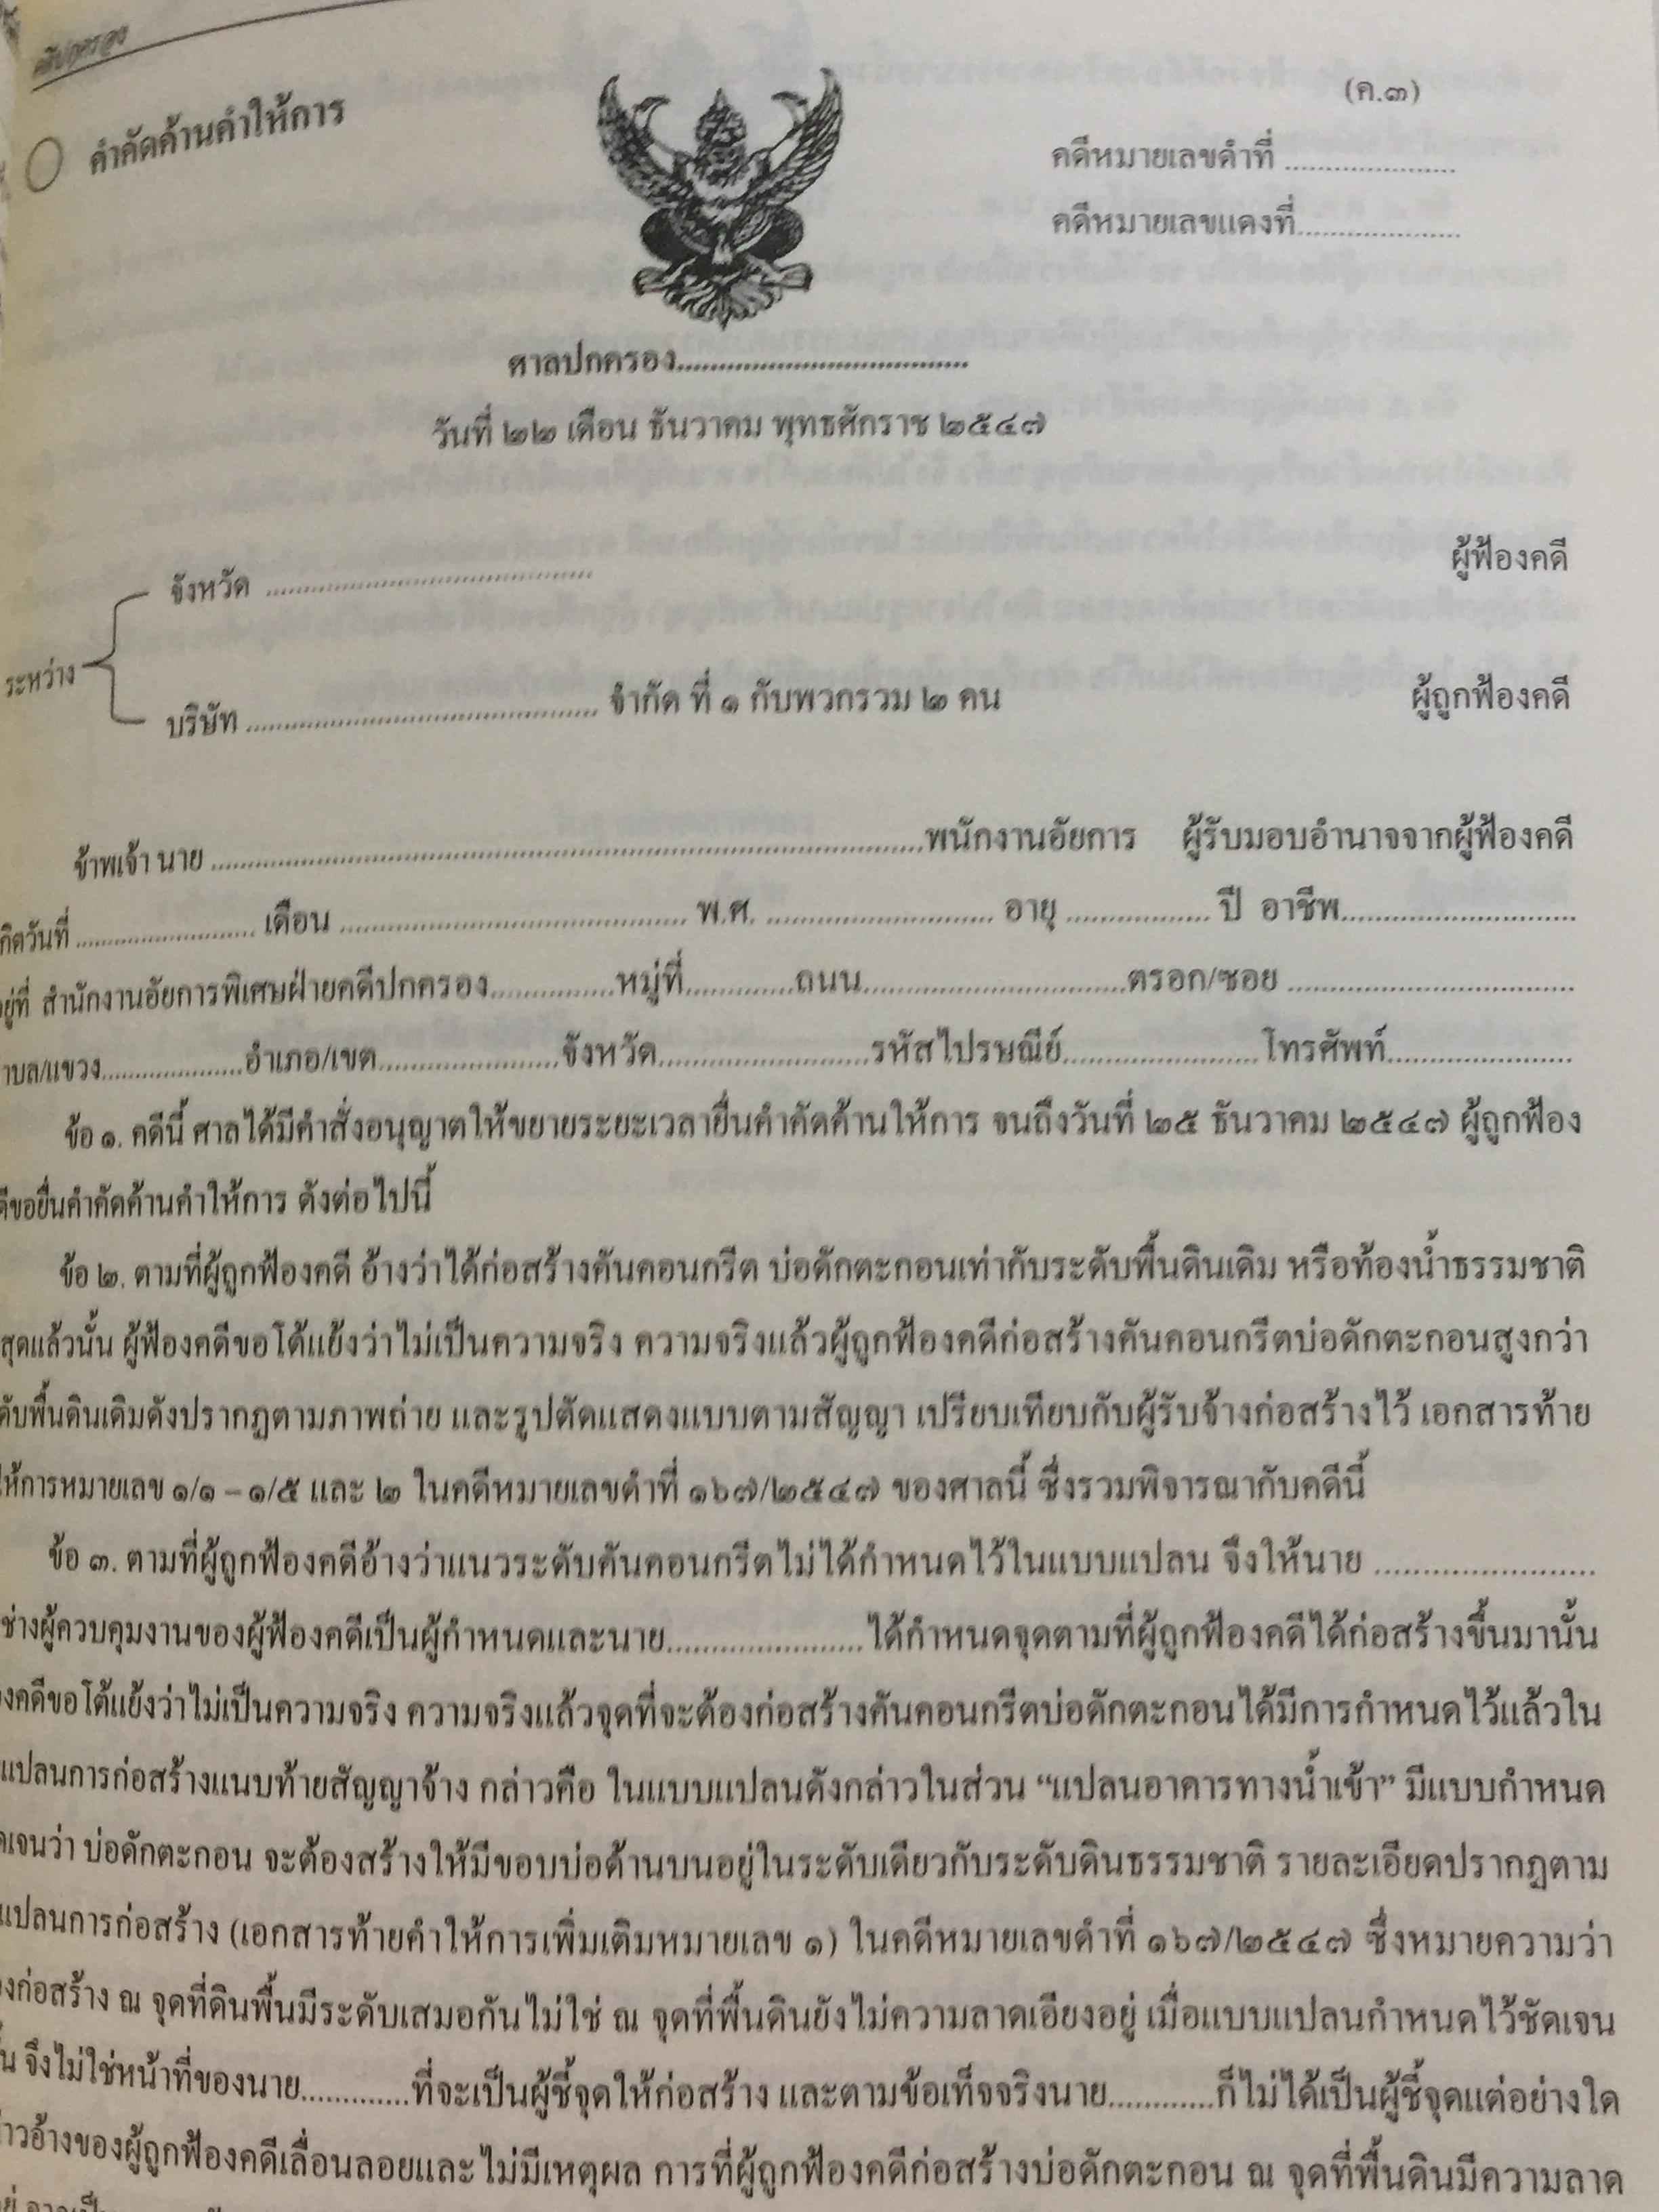 คำคัดค้านคำให้การ
(ค.๓)
คดีหมายเลขดำที่ .....................
คดีหมายเลขแดงที่....................
ศาลปกครอง...................................
วันที่ ๒๒ เดือน ธันวาคม พุทธศักราช ๒๕๔๗
จังหวัด ........................................ ผู้ฟ้องคดี
ระหว่าง
บริษัท ........................................... จำกัด ที่ ๑ กับพวกรวม ๒ คน ผู้ถูกฟ้องคดี
ข้าพเจ้า นาย .....................................................................................พนักงานอัยการ ผู้รับมอบอำนาจจากผู้ฟ้องคดี
กิดวันที่ .......................... เดือน .......................................... พ.ศ. ........................... อายุ ................. ปี อาชีพ............................
ยู่ที่ สำนักงานอัยการพิเศษฝ่ายคดีปกครอง...............หมู่ที่.............ถนน................................ตรอก/ซอย ..................................
าบล/แขวง....................อำเภอ/เขต......................จังหวัด.........................รหัสไปรษณีย์.......................โทรศัพท์......................
ข้อ ๑. คดีนี้ ศาลได้มีคำสั่งอนุญาตให้ขยายระยะเวลายื่นคำคัดค้านให้การ จนถึงวันที่ ๒๕ ธันวาคม ๒๕๔๗ ผู้ถูกฟ้อง
ดีขอยื่นคำคัดค้านคำให้การ ดังต่อไปนี้
ข้อ ๒. ตามที่ผู้ถูกฟ้องคดี อ้างว่าได้ก่อสร้างคันคอนกรีต บ่อดักตะกอนเท่ากับระดับพื้นดินเดิม หรือท้องน้ำธรรมชาติ
สุดแล้วนั้น ผู้ฟ้องคดีขอโด้แย้งว่าไม่เป็นความจริง ความจริงแล้วผู้ถูกฟ้องคดีก่อสร้างคันคอนกรีตบ่อดักตะกอนสูงกว่า
ดับพื้นดินเดิมดังปรากฏตามภาพถ่าย และรูปตัดแสดงแบบตามสัญญา เปรียบเทียบกับผู้รับจ้างก่อสร้างไว้ เอกสารท้าย
ให้การหมายเลข ๑/๑ – ๑/๕ และ ๒ ในคดีหมายเลขดำที่ ๑๖๗/๒๕๔๗ ของศาลนี้ ซึ่งรวมพิจารณากับคดีนี้
ข้อ ๓. ตามที่ผู้ถูกฟ้องคดีอ้างว่าแนวระดับคันคอนกรีตไม่ได้กำหนดไว้ในแบบแปลน จึงให้นาย .......................
ช่างผู้ควบคุมงานของผู้ฟ้องคดีเป็นผู้กำหนดและนาย....................ได้กำหนดจุดตามที่ผู้ถูกฟ้องคดีได้ก่อสร้างขึ้นมานั้น
องคดีขอโต้แย้งว่าไม่เป็นความจริง ความจริงแล้วจุดที่จะต้องก่อสร้างคันคอนกรีตบ่อดักตะกอนได้มีการกำหนดไว้แล้วใน
แปลนการก่อสร้างแนบท้ายสัญญาจ้าง กล่าวคือ ในแบบแปลนดังกล่าวในส่วน “แปลนอาคารทางน้ำเข้า” มีแบบกำหนด
ดเจนว่า บ่อดักตะกอน จะต้องสร้างให้มีขอบบ่อด้านบนอยู่ในระดับเดียวกับระดับดินธรรมชาติ รายละเอียดปรากฏตาม
แปลนการก่อสร้าง (เอกสารท้ายคำให้การเพิ่มเติมหมายเลข ๑) ในคดีหมายเลขดำที่ ๑๖๗/๒๕๔๗ ซึ่งหมายความว่า
องก่อสร้าง ณ จุดที่ดินพื้นมีระดับเสมอกันไม่ใช่ ณ จุดที่พื้นดินยังไม่ความลาดเอียงอยู่ เมื่อแบบแปลนกำหนดไว้ชัดเจน
้น จึงไม่ใช่หน้าที่ของนาย.............ที่จะเป็นผู้ชี้จุดให้ก่อสร้าง และตามข้อเท็จจริงนาย.............ก็ไม่ได้เป็นผู้ชี้จุดแต่อย่างใด
่าวอ้างของผู้ถูกฟ้องคดีเลื่อนลอยและไม่มีเหตุผล การที่ผู้ถูกฟ้องคดีก่อสร้างบ่อดักตะกอน ณ จุดที่พื้นดินมีความลาด